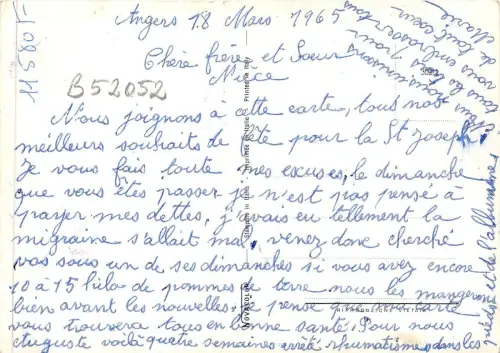 Angers 18 Mars 1965
Chère frère et Soeur
Nièce
Nous joignons à cette carte, tous nos
meilleurs souhaits de fête pour la St Joseph
Je vous fais toute mes excuses, le dimanche
que vous êtes passer je n'est pas pensé à
payer mes dettes, j'avais eu tellement la
migraine s'allait mal, venez donc cherché
vos sous un de ses dimanches si vous avez encore
10 à 15 kilo de pommes de terre nous les mangerons
bien avant les nouvelles. Je pense que
vous trouvera tous en bonne santé. Pour nous
Auguste voilà quatre semaines arrêté rhumatisme dans les
pieds et de l'albumine,
nous
vous embrassons tous
de tout coeur
115805F
B52052
Printed in Italy
Imprimé en Italie
NOVACOLOR